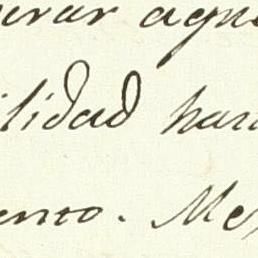 erar aque
ilidad hara
ento. Mex